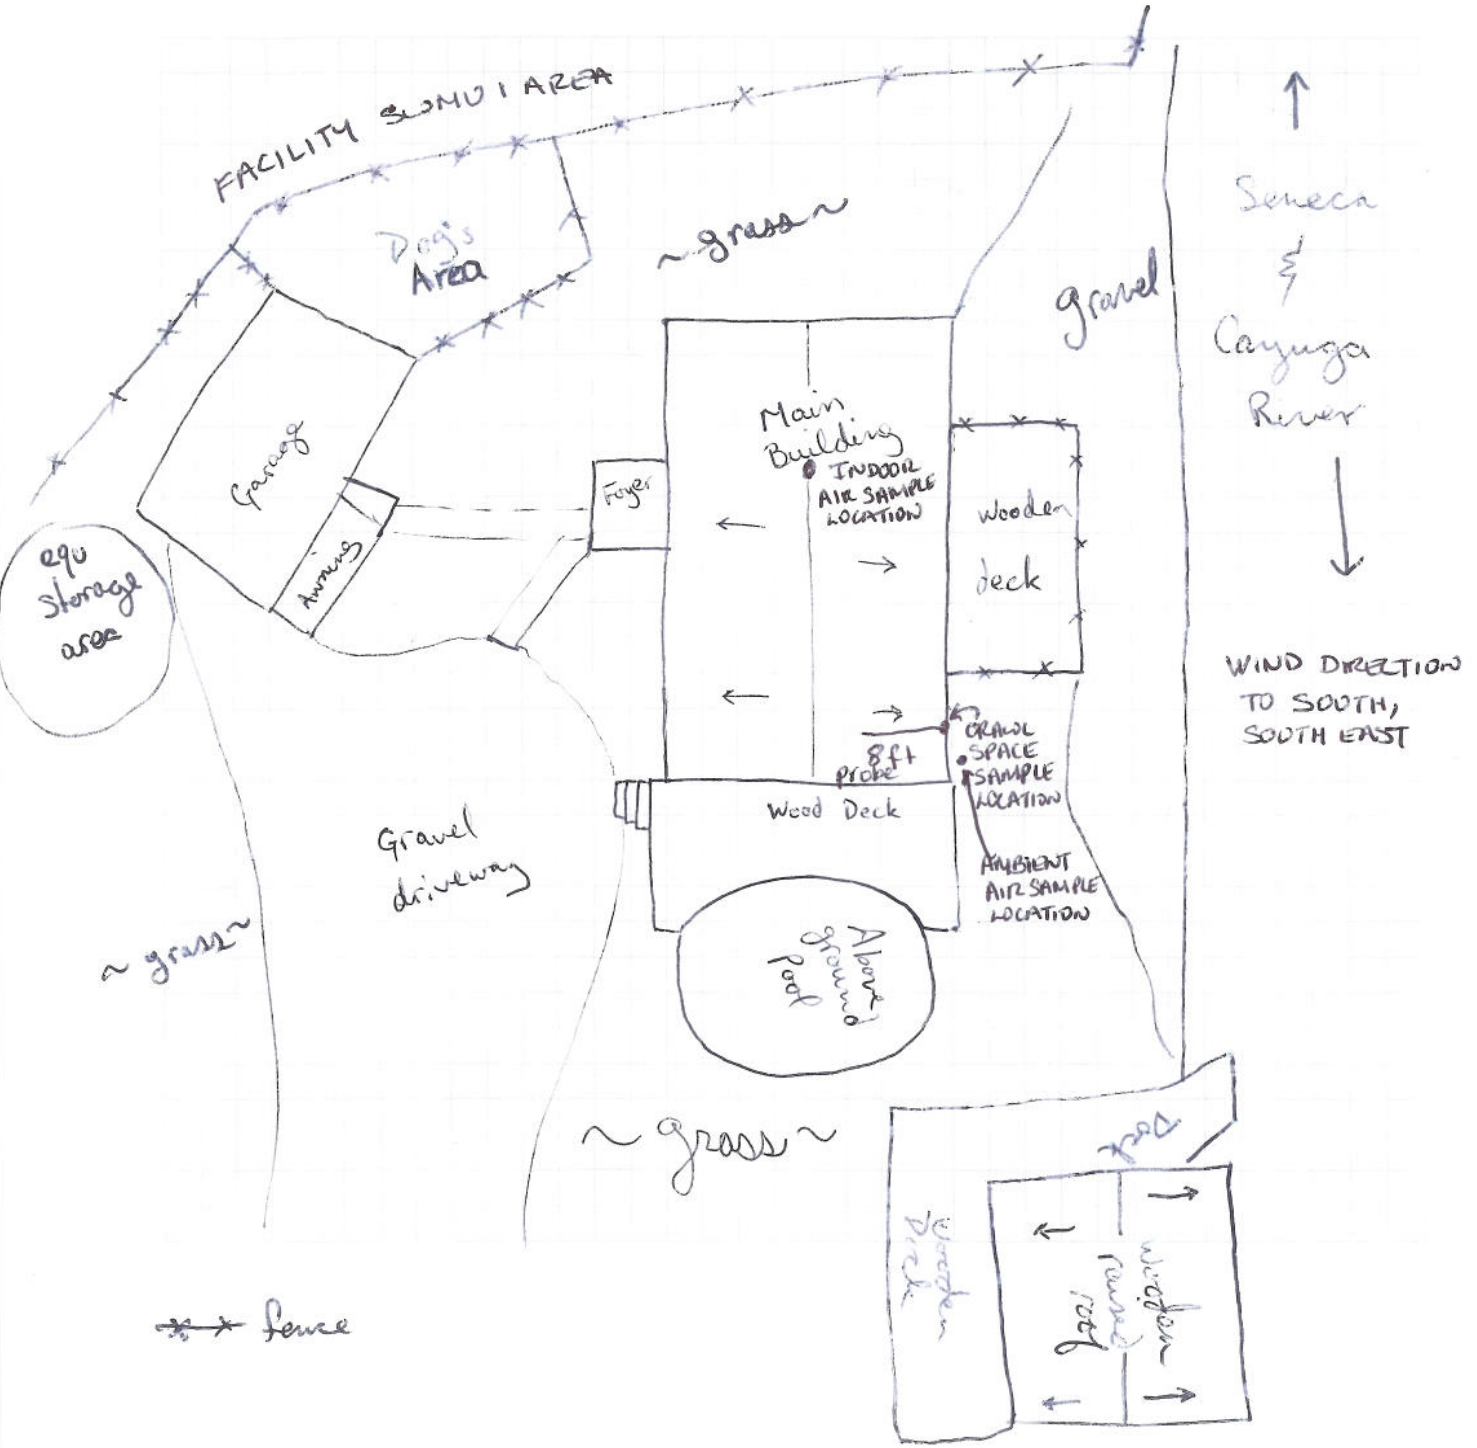 FACILITY SWMU 1 AREA
Dog's
Area
~ grass ~
gravel
Seneca
&
Cayuga
River
Garage
Awning
Foyer
Main
Building
INDOOR
AIR SAMPLE
LOCATION
wooden
deck
equ
storage
area
WIND DIRECTION
TO SOUTH,
SOUTH EAST
8 ft
probe
CRAWL
SPACE
SAMPLE
LOCATION
Wood Deck
AMBIENT
AIR SAMPLE
LOCATION
Gravel
driveway
~ grass ~
Above
ground
pool
~ grass ~
Dock
Wooden
Deck
wooden
raised
roof
fence